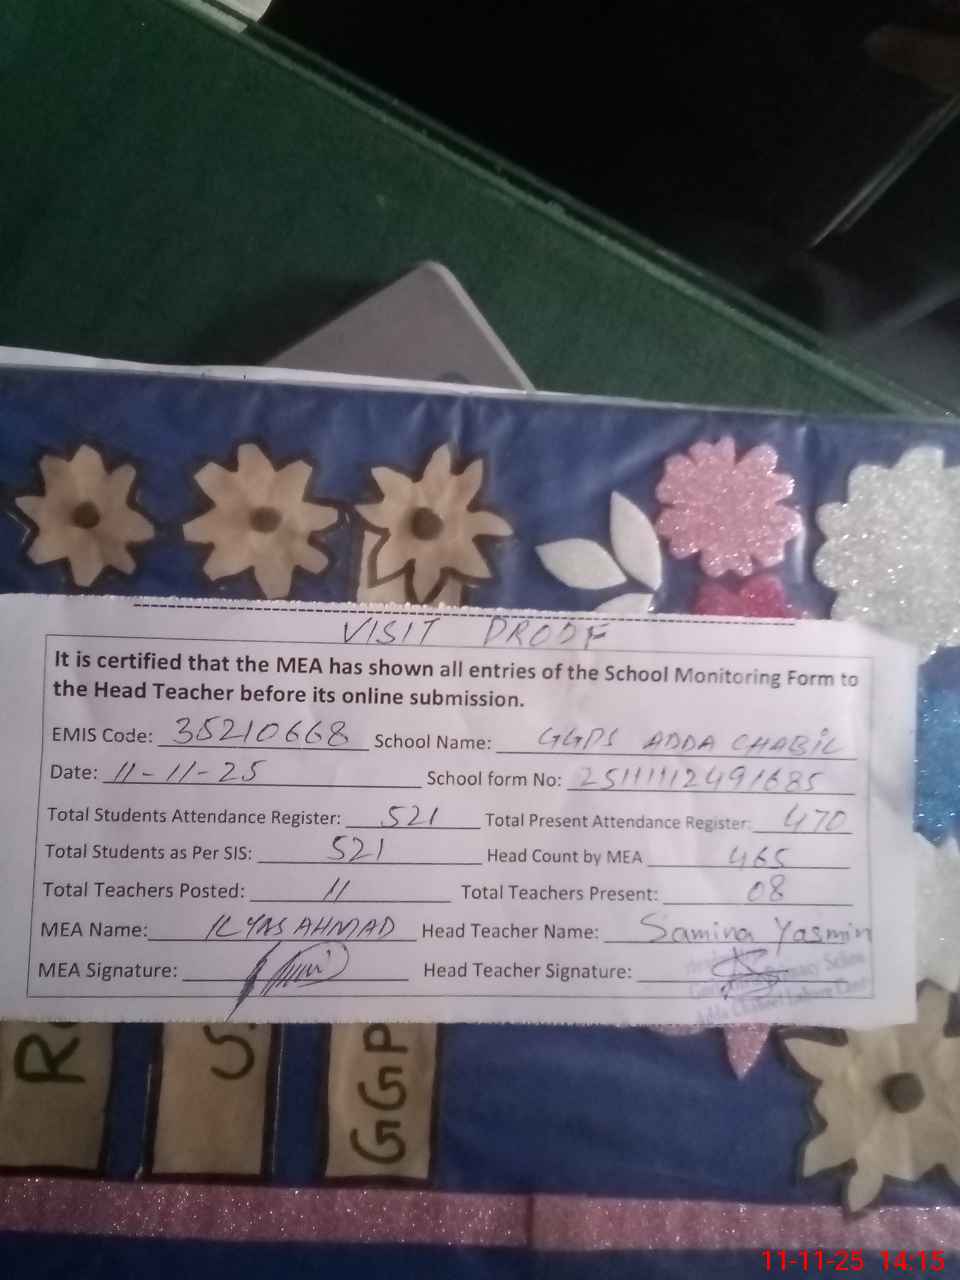 VISIT PROOF
It is certified that the MEA has shown all entries of the School Monitoring Form to
the Head Teacher before its online submission.
EMIS Code: 35210668 School Name: GGPS ADDA CHABIL
Date: 11-11-25 School form No:
Total Students Attendance Register: 521 Total Present Attendance Register: 470
Total Students as Per SIS: 521 Head Count by MEA 465
Total Teachers Posted: 11 Total Teachers Present: 08
MEA Name: ILYAS AHMAD Head Teacher Name: Samina Yasmin
MEA Signature: Head Teacher Signature:
GGP
11-11-25 14:15